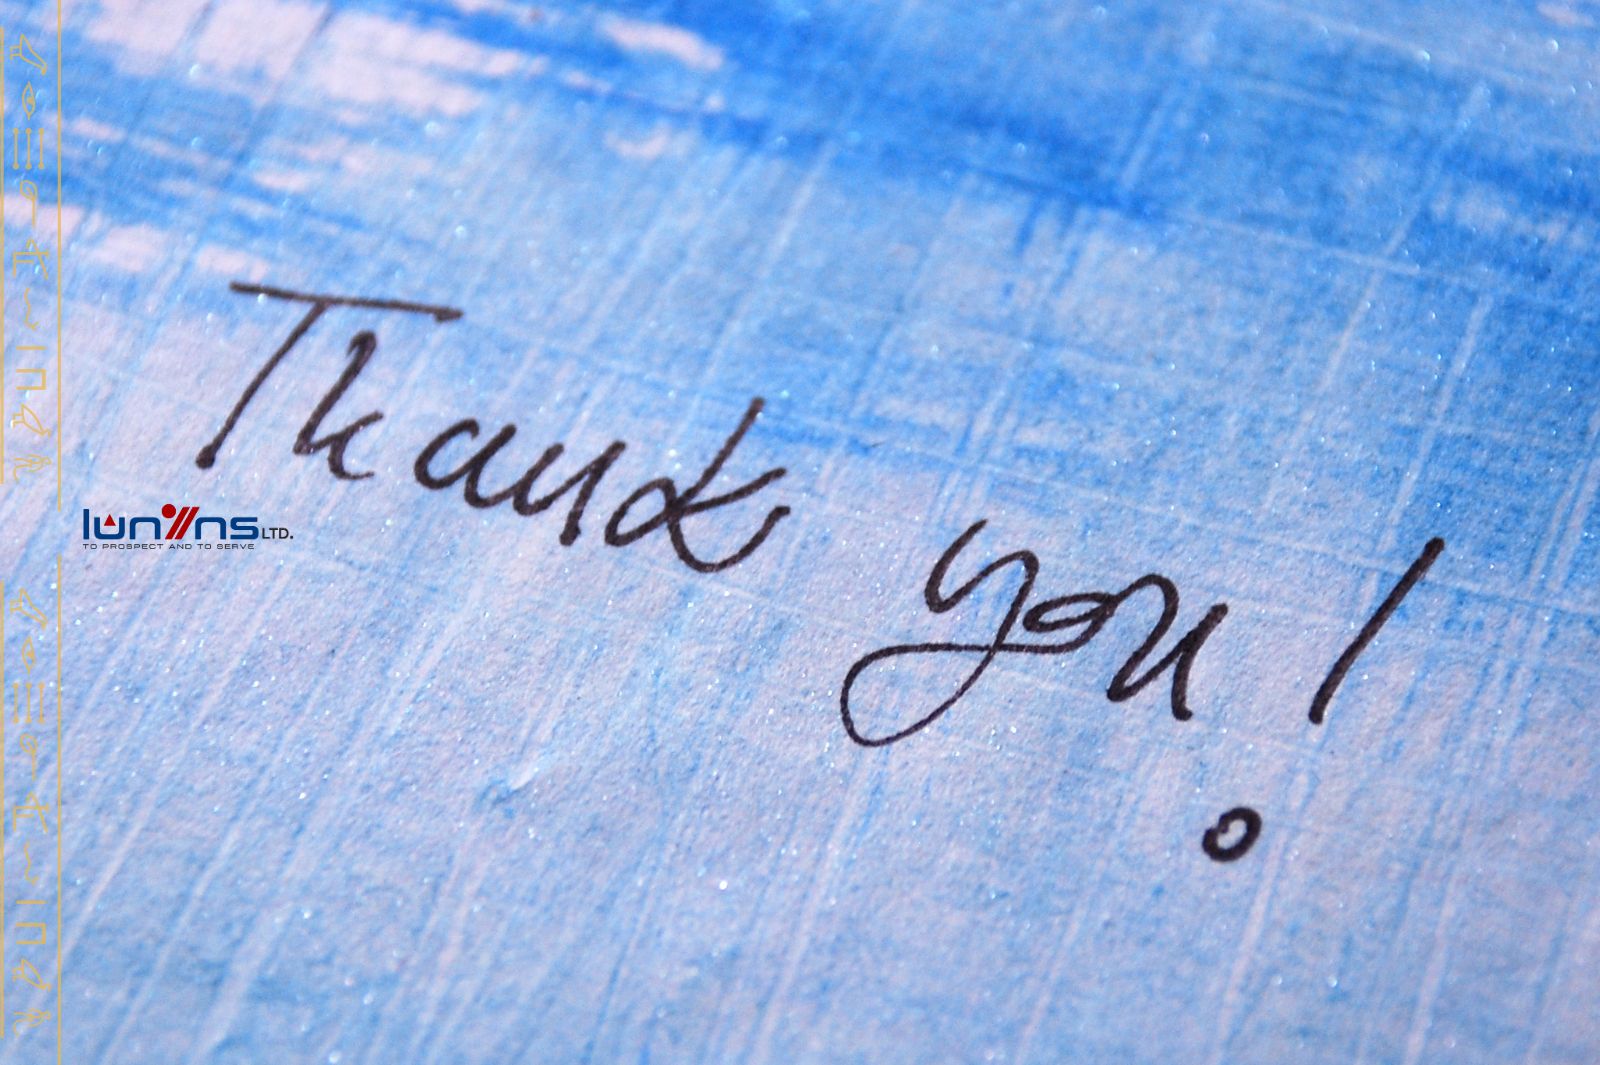 Thank you!
LTD.
TO PROSPECT AND TO SERVE